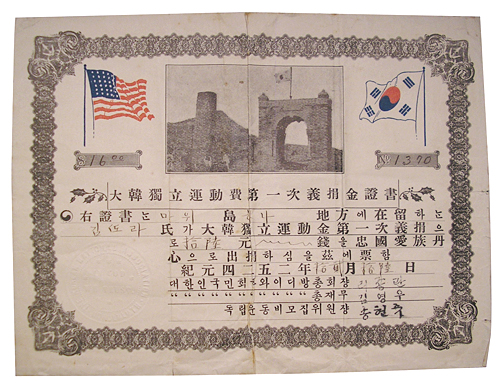 $ 16.00
No 1370
大韓獨立運動費第一次義捐金證書
右證書는 마위 島 地方에 在留하는
김도라 氏가 大韓獨立運動金第一次義捐金으
로 拾陸 元 錢을忠國愛族丹
心으로出捐하심을玆에票함
紀元四二五二年 月拾陸日
대한인국민회하와이디방총회장
〃 〃 〃 〃 〃 〃총재무 김영우
독립운동비모집위원쟝